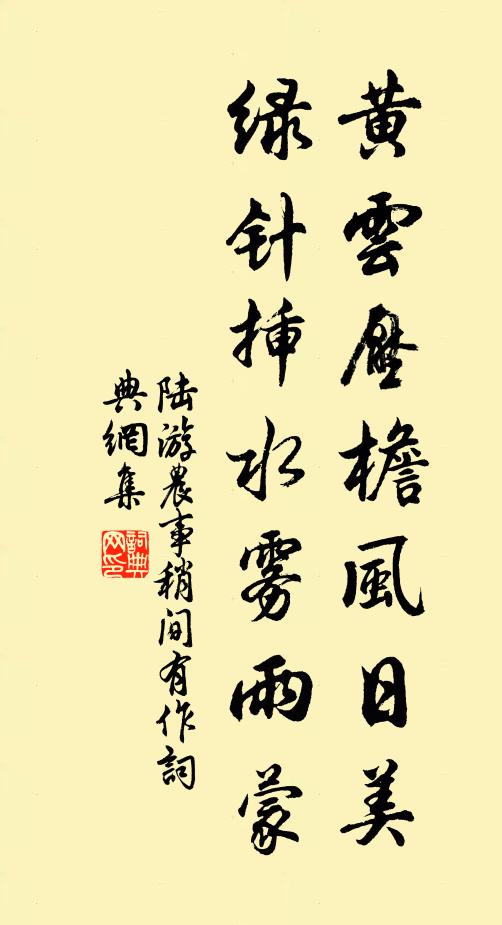 黄雲壓檐風日美
绿针插水雾雨蒙
陆游農事稍间有作詞
典網集
詞典网印